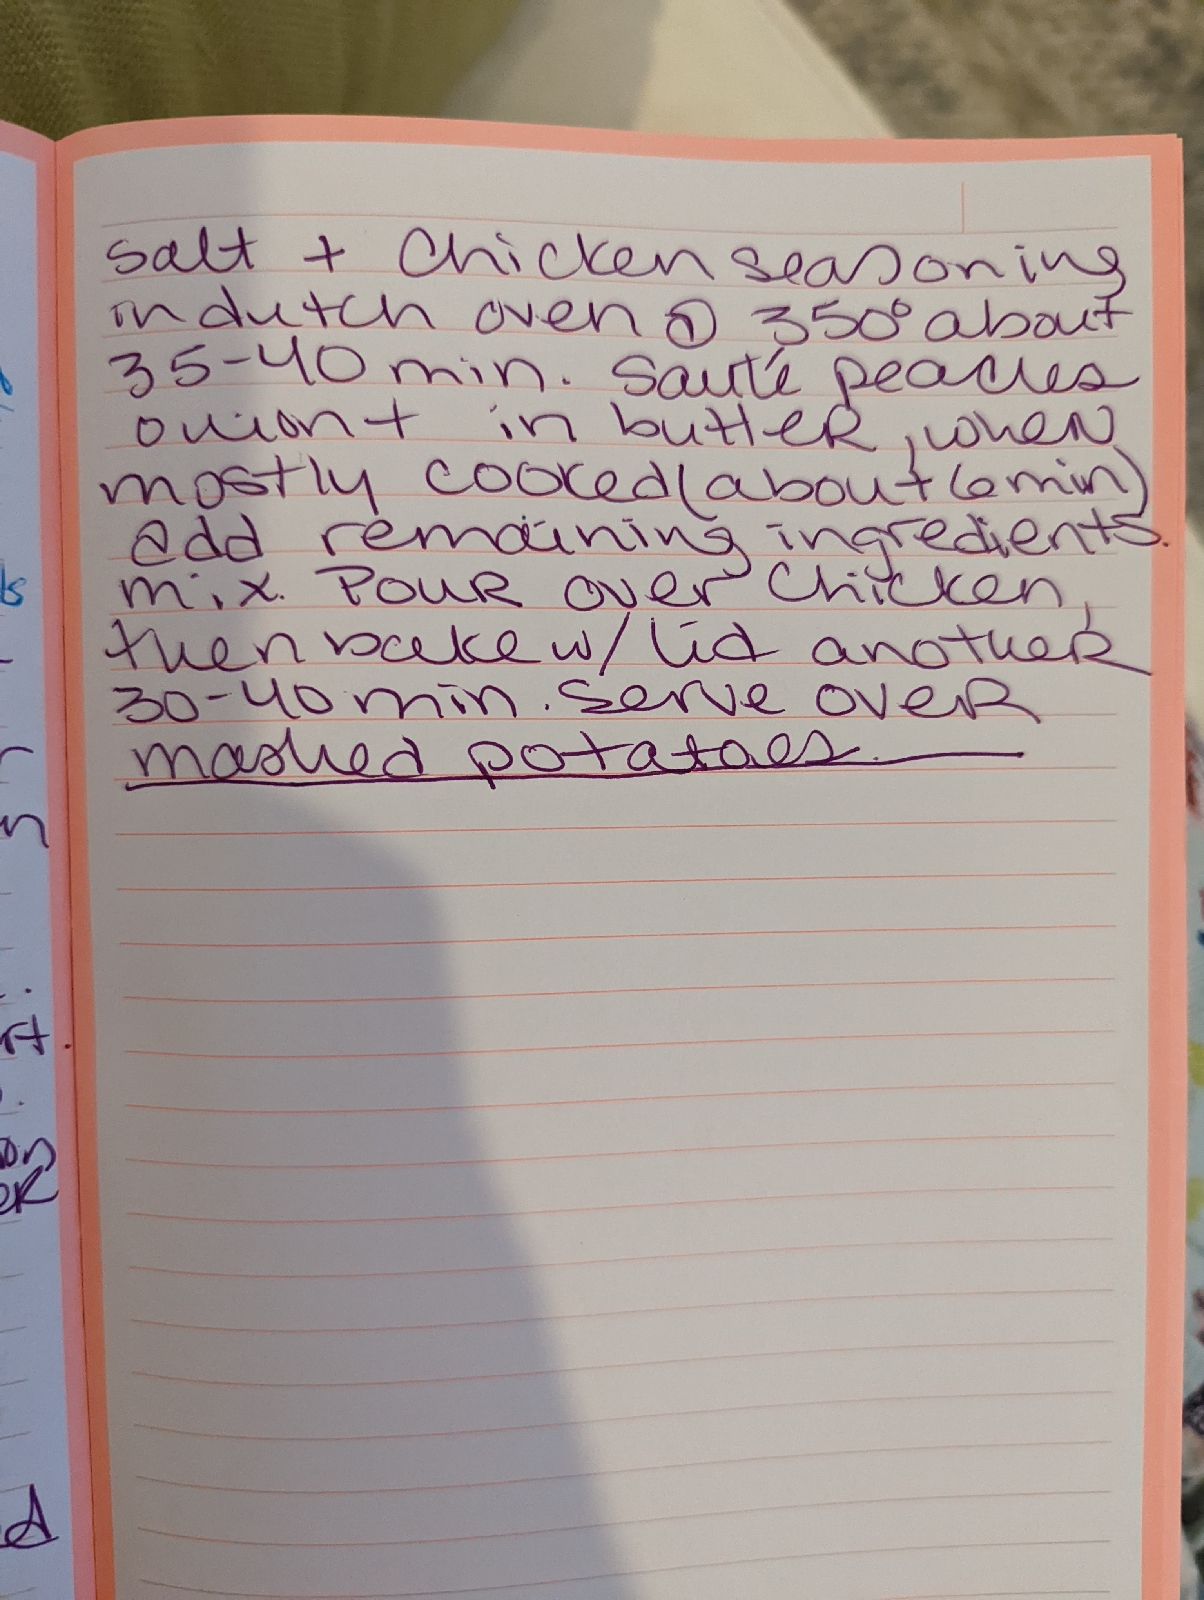 salt + Chicken seasoning
in dutch oven @ 350° about
35-40 min. Sauté peaches
onion + in butter, when
mostly cooked (about 6 min)
add remaining ingredients.
mix. Pour over Chicken,
then bake w/ lid another
30-40 min. Serve over
mashed potatoes.